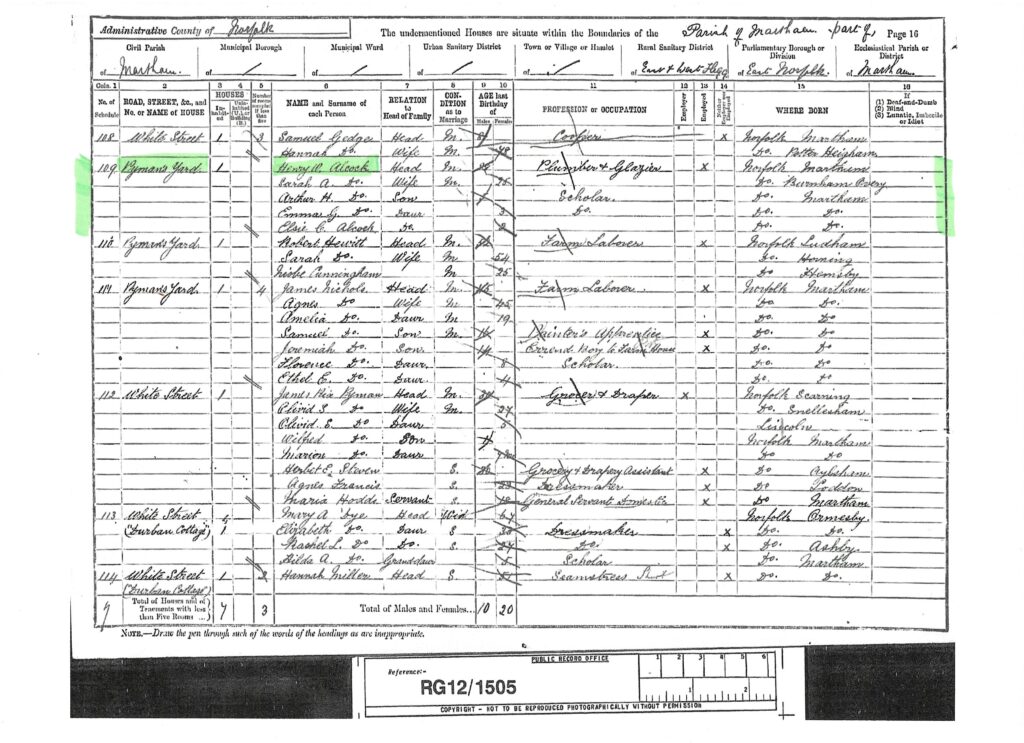 Administrative County of Norfolk The undermentioned Houses are situate within the Boundaries of the Parish of Martham part of Page 16
Civil Parish Municipal Borough Municipal Ward Urban Sanitary District Town or Village or Hamlet Rural Sanitary District Parliamentary Borough or Division Ecclesiastical Parish or District
of Martham of / of / of / of / of East & West Flegg of East Norfolk of Martham
Cols. 1 2 3 4 5 6 7 8 9 10 11 12 13 14 15 16
No. of Schedule ROAD, STREET, &c., and No. or NAME of HOUSE HOUSES Inhabited NAME and Surname of each Person RELATION to Head of Family CONDITION as to Marriage AGE last Birthday of Males Females PROFESSION or OCCUPATION Employer Employed Neither Employer nor Employed WHERE BORN If (1) Deaf-and-Dumb (2) Blind (3) Lunatic, Imbecile or Idiot
108 White Street 1 3 Samuel Gedge Head M. Cooper x Norfolk Martham
Hannah Do. Wife M. 48 Do. Potter Heigham
109 Pyman's Yard 1 Henry W. Alcock Head M. Plumber & Glazier x Norfolk Martham
Sarah A. Do. Wife M. Do. Burnham Overy
Arthur H. Do. Son Scholar. Do. Martham
Emma G. Do. Daur Do. Do. Do.
Elsie C. Alcock Do. Do. Do.
110 Pyman's Yard 1 Robert Hewitt Head M. Farm Laborer x Norfolk Ludham
Sarah Do. Wife M 54 Do. Horning
Cunningham M 25 Do Hemsby
111 Pyman's Yard 1 4 James Nichols Head M Farm Laborer x Norfolk Martham
Agnes Do Wife M 45 Do Do
Amelia Do Daur M 19 Do. Do
Samuel Do. Son M. Painter's Apprentice x Do. Do
Jeremiah Do. Son 14 Errend Boy to Farm House x Do. Do
Florence Do. Daur. 8 Scholar. Do. Do
Ethel E. Do. Daur 4 Do. Do
112 White Street 1 James Rix Pyman Head M. Grocer & Draper x Norfolk Scarning
Olivid S. Do Wife M. 27 Do. Snettesham
Olivid E. Do Daur 5 Lincoln
Wilfred Do. Son Norfolk Martham
Marion Do. Daur Do Do
Herbet E. Steven S. Grocery & Drapery Assistant x Do Aylsham
Agnes Francis S Dressmaker x Do Loddon
Maria Hodds Servant S General Servant Domestic x Do Martham
113 White Street 1 Mary A Dye Head Wid 67 Norfolk Ormesby
("Durban Cottage") Elizabeth Do. Daur S Dressmaker x Do. Do.
Rachel L. Do Do. S 27 Do. x Do. Ashby
Hilda A. Do. Granddaur Scholar Do. Martham
114 White Street 1 2 Hannah Miller Head S. Seamstress x Do. Do.
(Durban Cottage)
7 Total of Houses and of Tenements with less than Five Rooms ... 7 3 Total of Males and Females... 10 20
NOTE.—Draw the pen through such of the words of the headings as are inappropriate.
PUBLIC RECORD OFFICE 1 2 3 4 5 6
Reference:-
RG12/1505
1 2
COPYRIGHT - NOT TO BE REPRODUCED PHOTOGRAPHICALLY WITHOUT PERMISSION